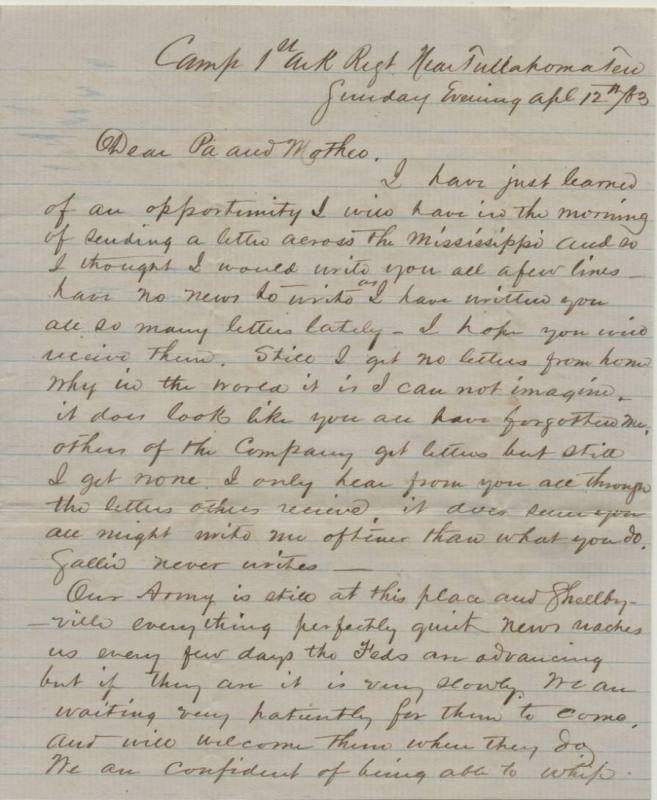 Camp 1st Ark Regt. Near Tullahoma Ten
Sunday Evening Apl 12th/63
Dear Pa and Mother.
I have just learned
of an opportunity I will have in the morning
of sending a letter across the Mississippi and so
I thought I would write you all a few lines –
have no news to write as I have written you
all so many letters lately – I hope you will
recieve them. Still I get no letters from home
Why in the world it is I can not imagine.
it does look like you all have forgotten me.
others of the Company get letters but still
I get none. I only hear from you all through
the letters others recieve it does seem you
all might write me oftiner than what you do.
Gallie never writes —
Our Army is still at this place and Shellby-
-ville everything perfectly quiet news reaches
us every few days the Feds are advancing
but if they are it is very slowly. We are
waiting very patiently for them to come.
and will welcome them when they do
We are confident of being able to whip